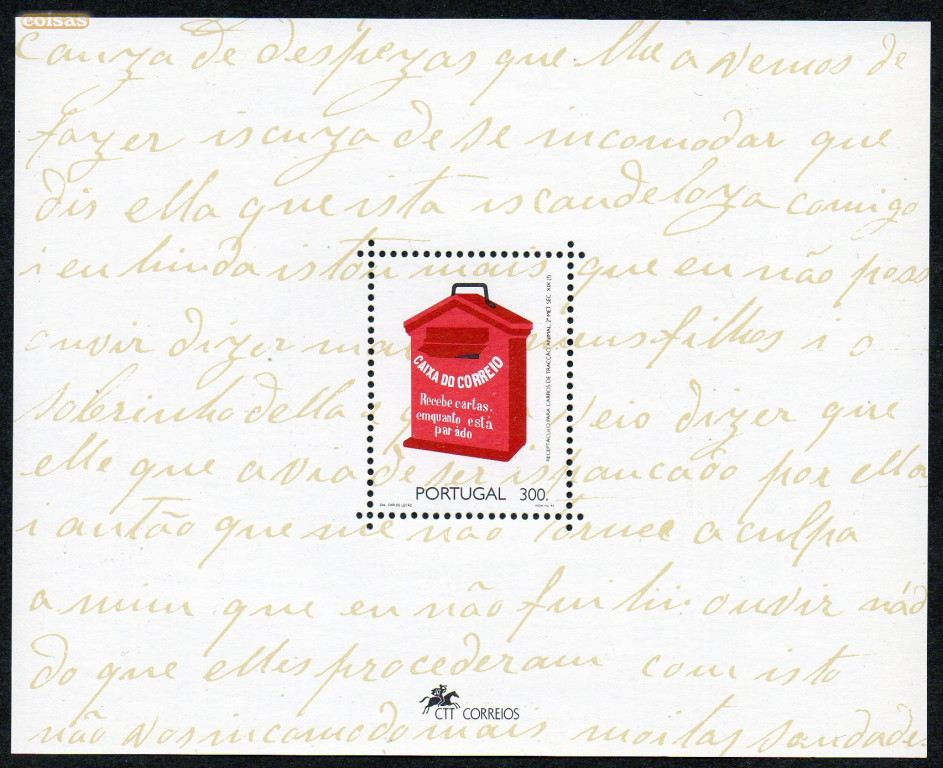 coisas
cauza de despezas que lhe a vemos de
fazer iscuza de se incomodar que
dis ella que ista iscandeloza comigo
i eu hinda iston mais que eu não poss
ouvir dizer mais meus filhos i o
sobrinho della veio dizer que
elle que avia de ser ispancado por ella
i antão que me não torne a culpa
a mim que eu não fui hi: ouvir nád
do que elles procederam com isto
não vos incomodo mais moitas saudades
CAIXA DO CORREIO
Recebe cartas.
emquanto está
parádo
RECEPTÁCULO PARA CARROS DE TRACÇÃO ANIMAL, 2ª MET. SEC. XIX (?)
PORTUGAL 300.
CTT CORREIOS